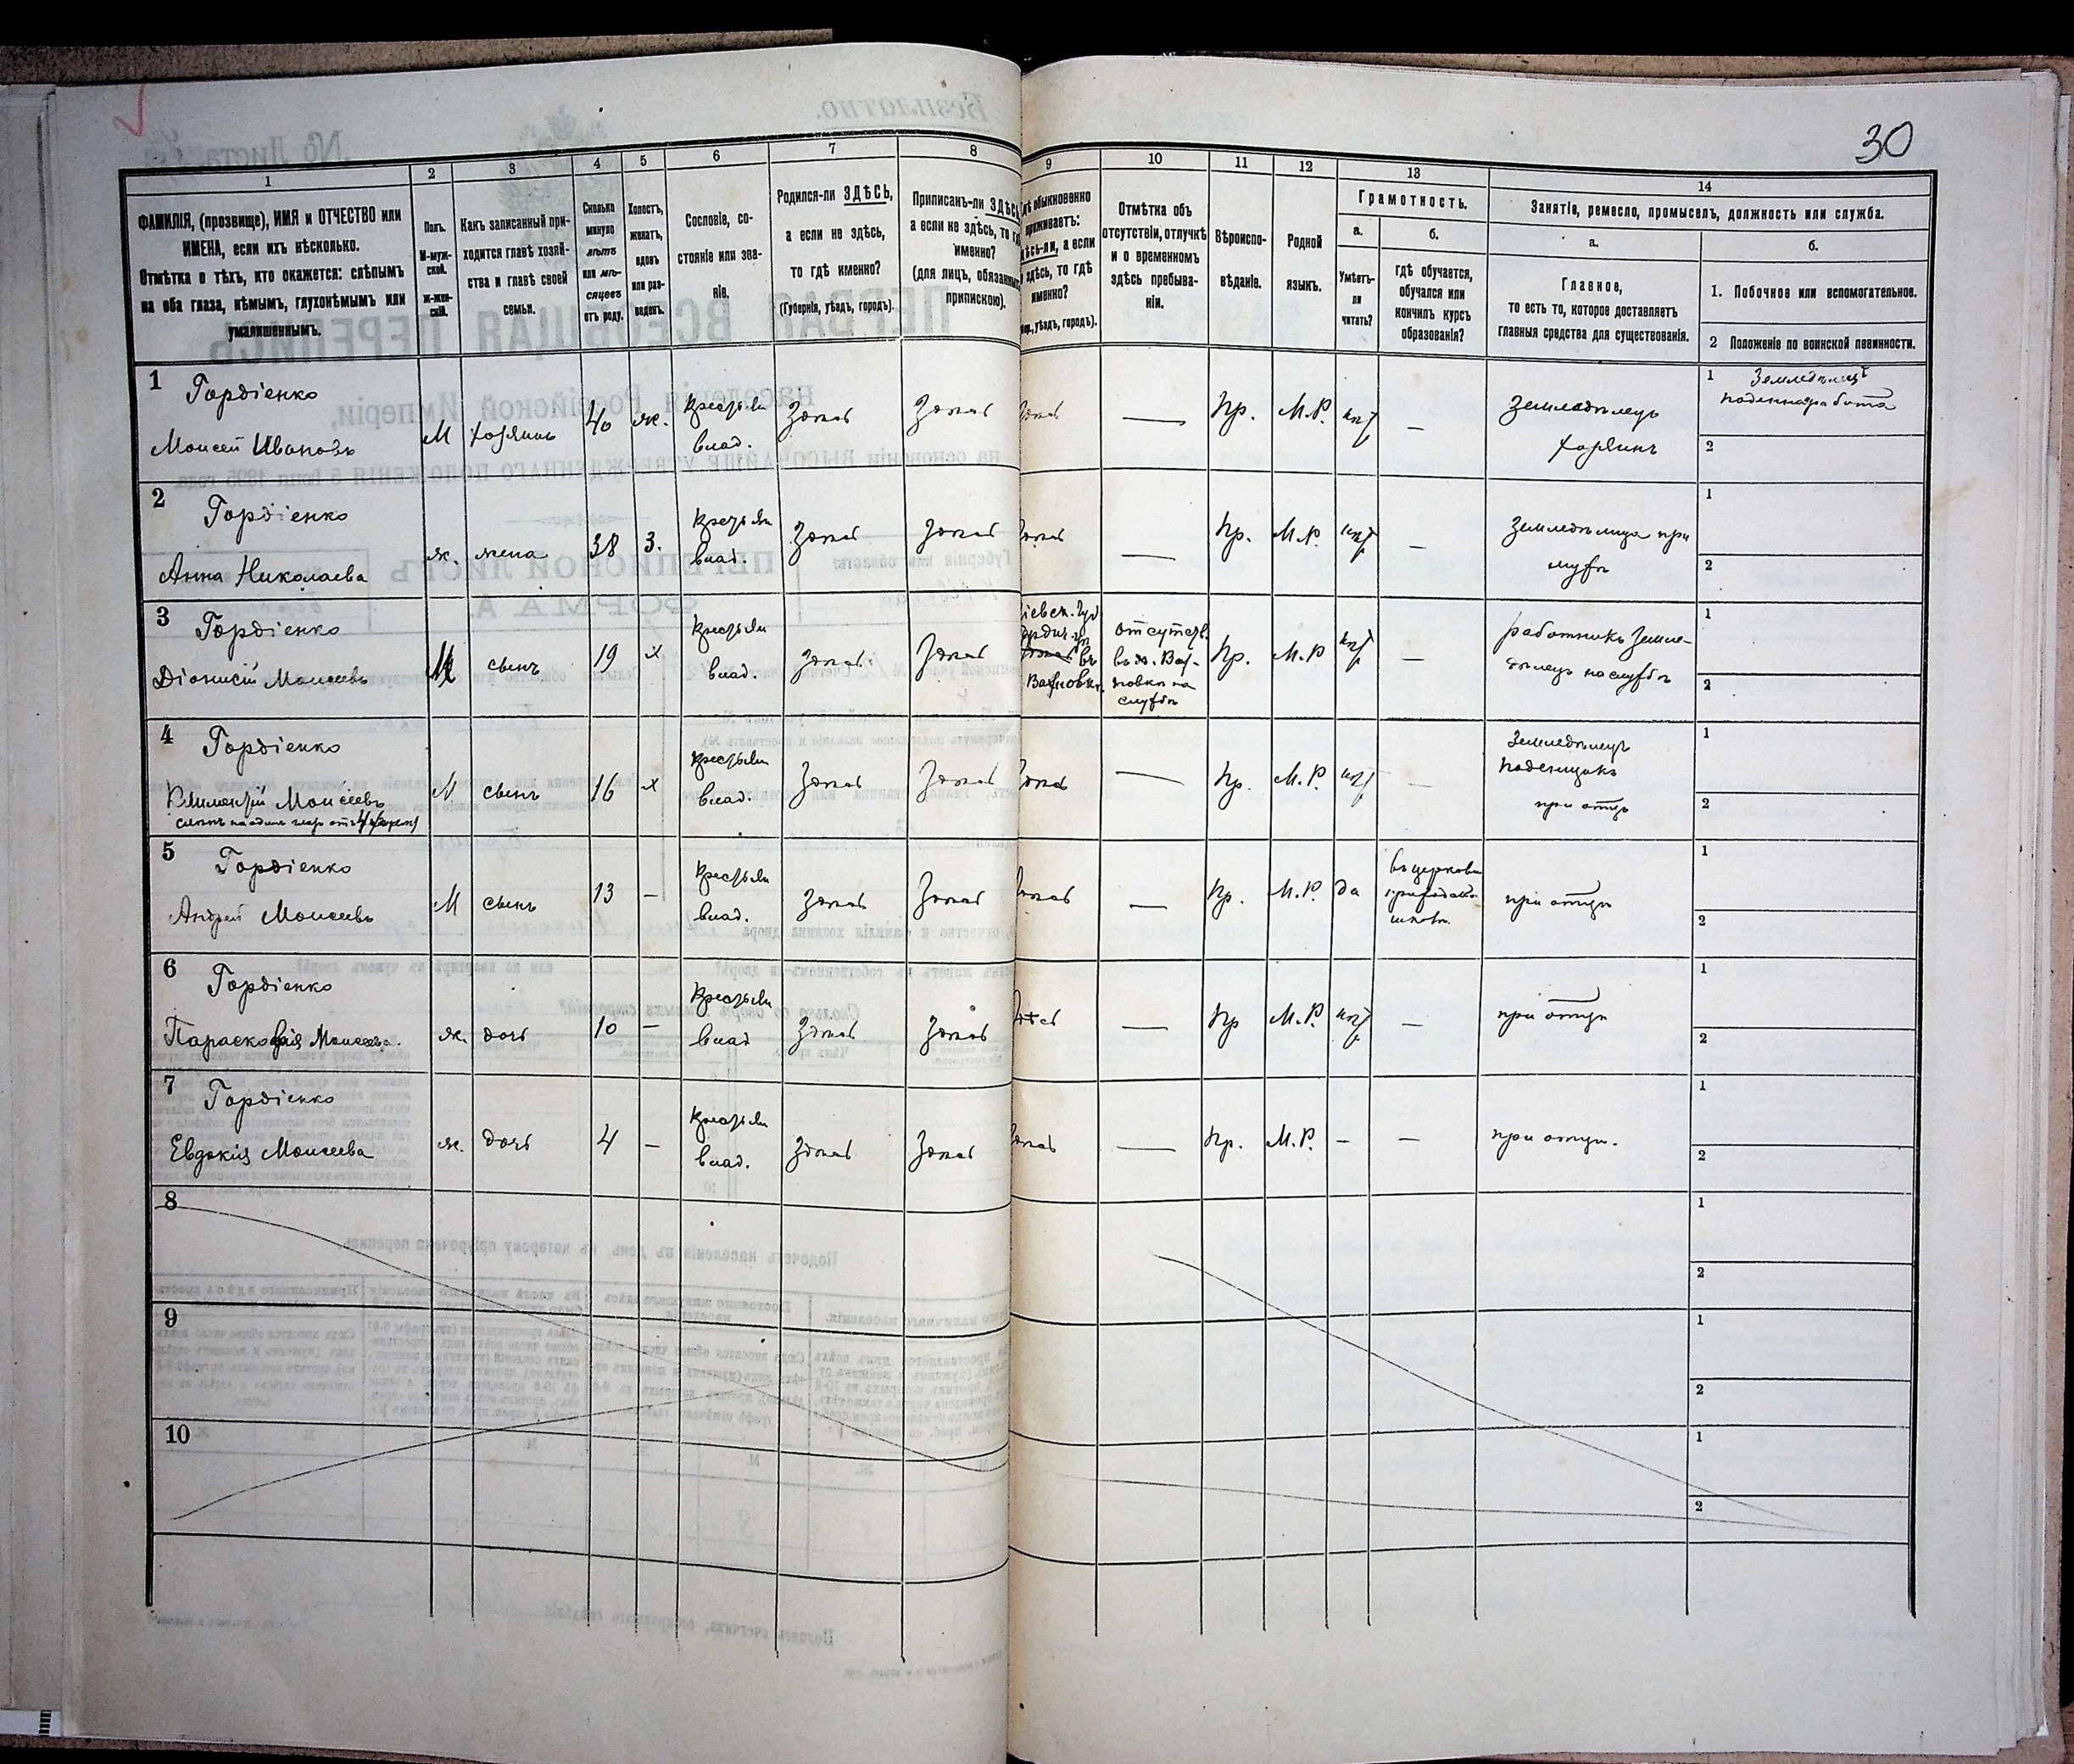 30
1
2
3
4
5
6
7
8
9
10
11
12
13
14
ФАМИЛІЯ, (прозвище), ИМЯ и ОТЧЕСТВО или
ИМЕНА, если ихъ нѣсколько.
Отмѣтка о тѣхъ, кто окажется: слѣпымъ
на оба глаза, нѣмымъ, глухонѣмымъ или
умалишеннымъ.
Полъ.
М-муж-
ской.
Ж-жен-
скій.
Какъ записанный при-
ходится главѣ хозяй-
ства и главѣ своей
семьи.
Сколько
минуло
лѣтъ
или мѣ-
сяцевъ
отъ роду.
Холостъ,
женатъ,
вдовъ
или раз-
веденъ.
Сословіе, со-
стояніе или зва-
ніе.
Родился-ли ЗДѢСЬ,
а если не здѣсь,
то гдѣ именно?
(Губернія, уѣздъ, городъ).
Приписанъ-ли ЗДѢСЬ
а если не здѣсь, то
именно?
(для лицъ, обязанныхъ
припискою).
обыкновенно
проживаетъ:
а если
здѣсь, то гдѣ
именно?
уѣздъ, городъ).
Отмѣтка объ
отсутствіи, отлучкѣ
и о временномъ
здѣсь пребыва-
ніи.
Вѣроиспо-
вѣданіе.
Родной
языкъ.
Грамотность.
а.
Умѣетъ-
ли
читать?
б.
гдѣ обучается,
обучался или
кончилъ курсъ
образованія?
Занятіе, ремесло, промыселъ, должность или служба.
а.
Главное,
то есть то, которое доставляетъ
главныя средства для существованія.
б.
1. Побочное или вспомогательное.
2 Положеніе по воинской повинности.
1
Гордіенко
Моисей Ивановъ
М
хозяинъ
40
ж.
крестьян
влад.
Здѣсь
Здѣсь
Здѣсь
—
Пр.
М.Р.
нѣт
—
Земледѣлецъ
хозяинъ
1 Земледѣлецъ
2
2
Гордіенко
Анна Николаева
ж.
жена
38
З.
крестьян
влад.
Здѣсь
Здѣсь
Здѣсь
—
Пр.
М.Р.
нѣт
—
Земледѣлица при
мужѣ
1
2
3
Гордіенко
Діонисій Моисеевъ
М
сынъ
19
х
крестьян
влад.
Здѣсь
Здѣсь
въ
отсутств.
на
службѣ
Пр.
М.Р
нѣт
—
работникъ Земле-
дѣлецъ на службѣ
1
2
4
Гордіенко
Климентій Моисеевъ
М
сынъ
16
х
крестьян
влад.
Здѣсь
Здѣсь
Здѣсь
—
Пр.
М.Р.
нѣт
—
Земледѣлецъ
поденщикъ
при отцѣ
1
2
5
Гордіенко
Андрей Моисеевъ
М
сынъ
13
—
крестьян
влад.
Здѣсь
Здѣсь
Здѣсь
—
Пр.
М.Р.
да
въ церковн
приходской
школѣ
при отцѣ
1
2
6
Гордіенко
Парасковія Моисеева.
ж.
дочь
10
—
крестьян
влад
Здѣсь
Здѣсь
Здѣсь
—
Пр
М.Р.
нѣт
—
при отцѣ
1
2
7
Гордіенко
Евдокія Моисеева
ж.
дочь
4
—
крестьян
влад.
Здѣсь
Здѣсь
Здѣсь
—
Пр.
М.Р.
—
—
при отцѣ.
1
2
8
1
2
9
1
2
10
1
2